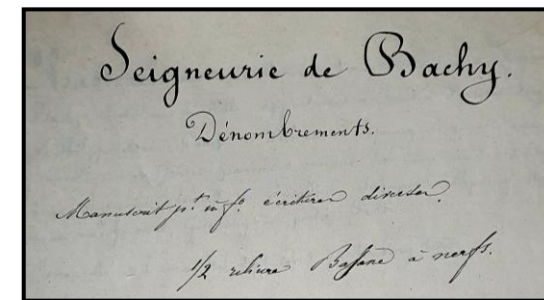 Seigneurie de Bachy.
Dénombrements.
Manuscrit pt in fo. écritures diverses.
1/2 reliure Basane à nerfs.